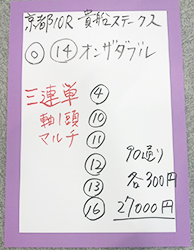 京都10R 貴船ステークス
◎ ⑭ オンザダブル
三連単
軸1頭
マルチ
④
⑩
⑪
⑫
⑬
⑯
90通り
各300円
27000円